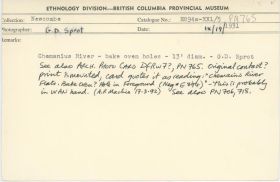 ETHNOLOGY DIVISION—BRITISH COLUMBIA PROVINCIAL MUSEUM
Collection: Newcombe Catalogue No.: PN765
Photographer: G.D. Sprot
Remarks:
Chemanius River - bake oven holes - 13' diam. - G.D. Sprot
See also Arch. Photo Card DfRw7?, PN765. Original contact?
print is mounted, card quotes it as reading: "Chemainus River
Flats. Bake Oven? Hole in Foreground (Neg # E746)" - This is probably
in WAN hand. 17-3-92) "See also PN706, 715.